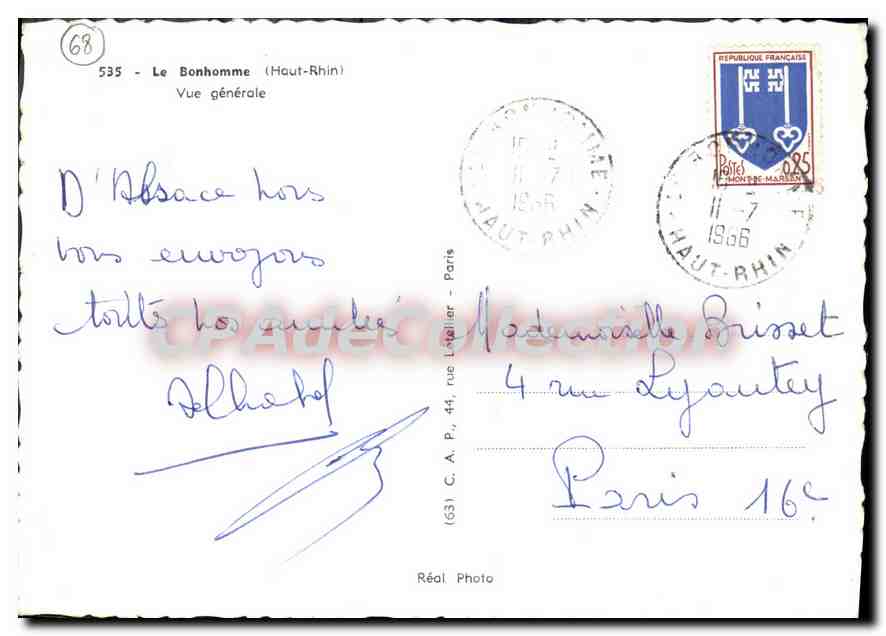 68
535 - Le Bonhomme (Haut-Rhin)
Vue générale
D'Alsace nous
vous envoyons
toutes nos amitiés
(63) C. A. P., 44, rue Letellier - Paris
Réal Photo
REPUBLIQUE FRANÇAISE
POSTES 0,25
MONT-DE-MARSAN
11-7
1966
HAUT-RHIN
11-7
1966
HAUT-RHIN
Mademoiselle Brisset
4 rue Lyautey
Paris 16e
CPAdeCollection